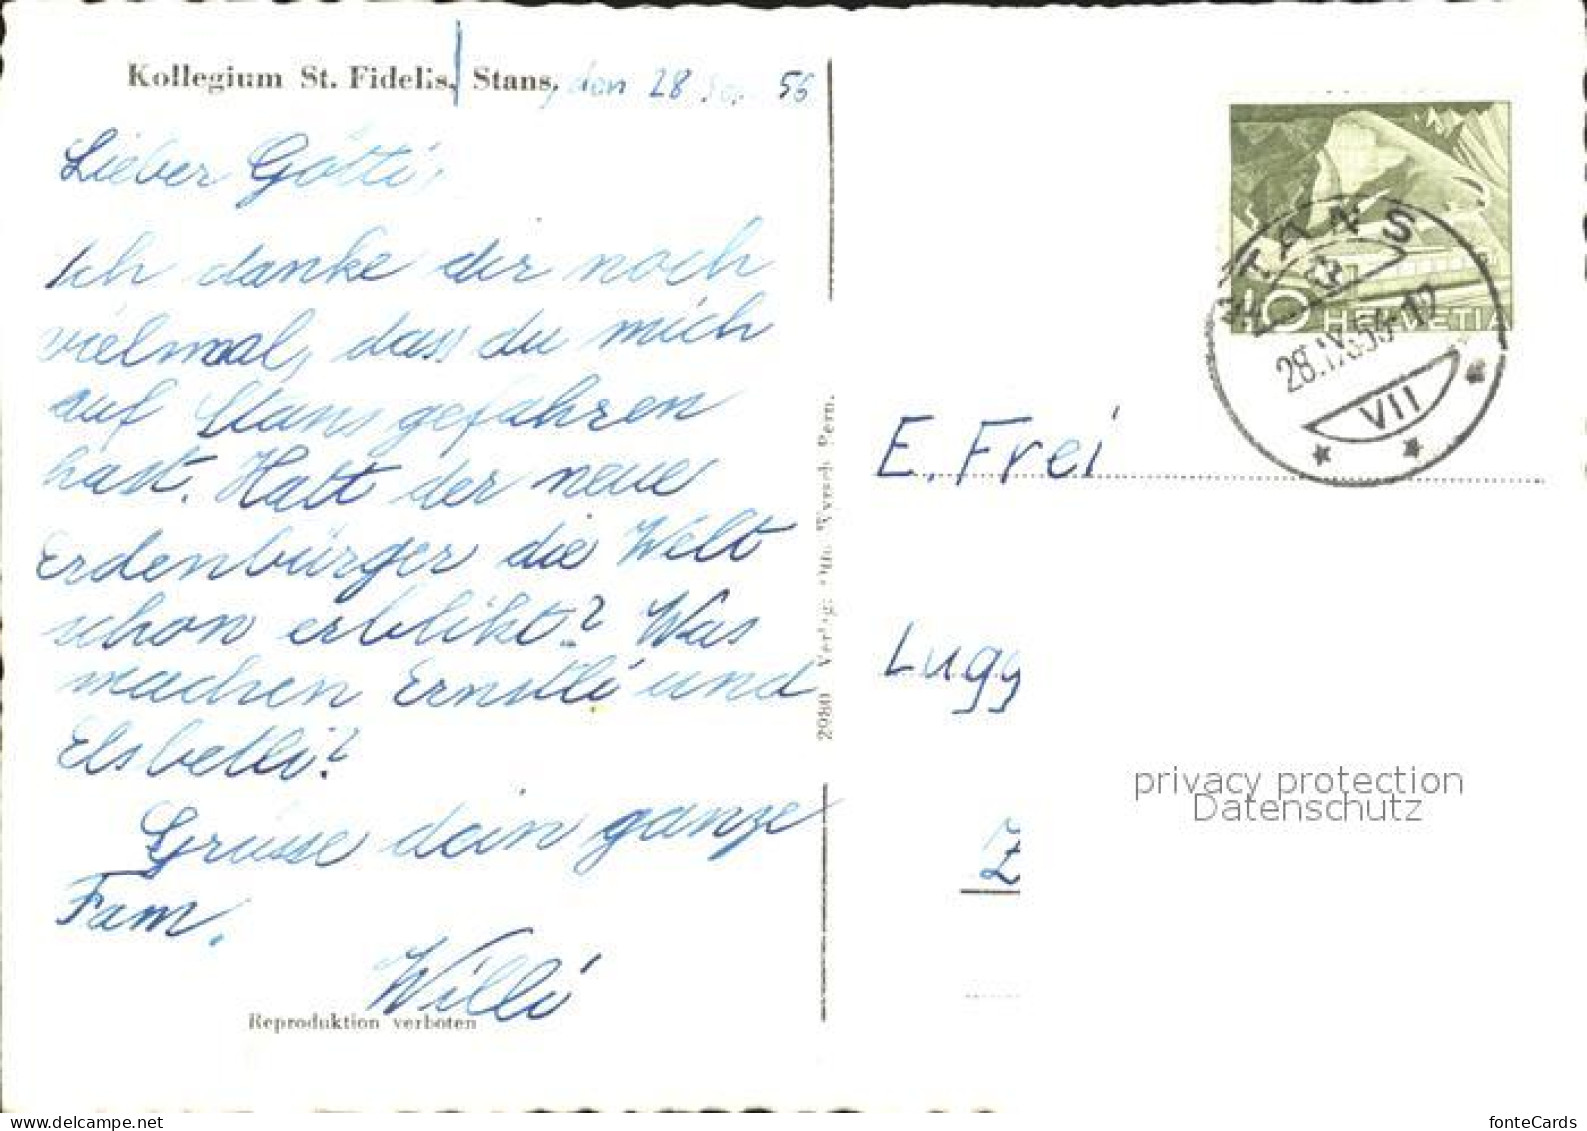 Kollegium St. Fidelis, Stans, den 28 Sep. 56
Lieber Götti,
Ich danke dir noch
vielmal, dass du mich
auf Stans gefahren
hast. Hatt der neue
Erdenbürger die Welt
schon erblikt? Was
machen Ernstli und
Elsbetli?
Grüsse dein ganze
Fam.
Willi
Reproduktion verboten
2980 Verlag: Otto Wyrsch Bern.
STANS
28.IX.56-12
VII
10 HELVETIA
E. Frei
Lugg
Z
privacy protection
Datenschutz
fonteCards